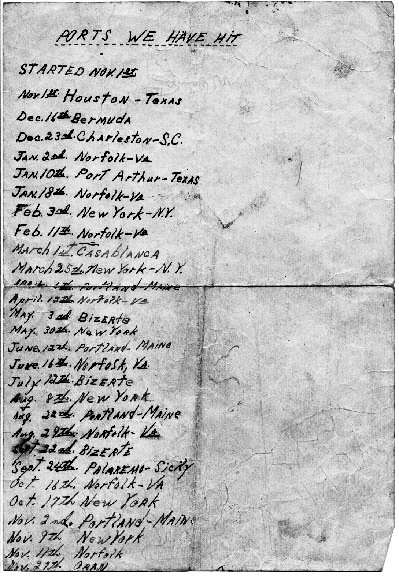 PORTS WE HAVE HIT
STARTED NOV 1st
Nov 1st Houston - Texas
Dec. 16th Bermuda
Dec. 23rd Charleston - S.C.
Jan. 2nd Norfolk - Va
Jan. 10th Port Arthur - Texas
Jan. 18th Norfolk - Va
Feb. 3rd New York - N.Y.
Feb. 11th Norfolk - Va
March 1st Casablanca
March 25th New York - N.Y.
April 1th Portland - Maine
April 12th Norfolk - Va
May. 3rd Bizerte
May. 30th New York
June. 12th Portland - Maine
June. 16th Norfosk, Va
July 12th Bizerte
Aug. 8th New York
Aug. 22nd Portland - Maine
Aug. 29th Norfolk - Va
22nd Bizerte
Sept. 24th Palaremo - Sicily
Oct. 16th Norfolk - VA
Oct. 17th New York
Nov. 2nd. Portland - Maine
Nov. 9th New York
Nov. 11th Norfolk
Nov. 27th ORAN